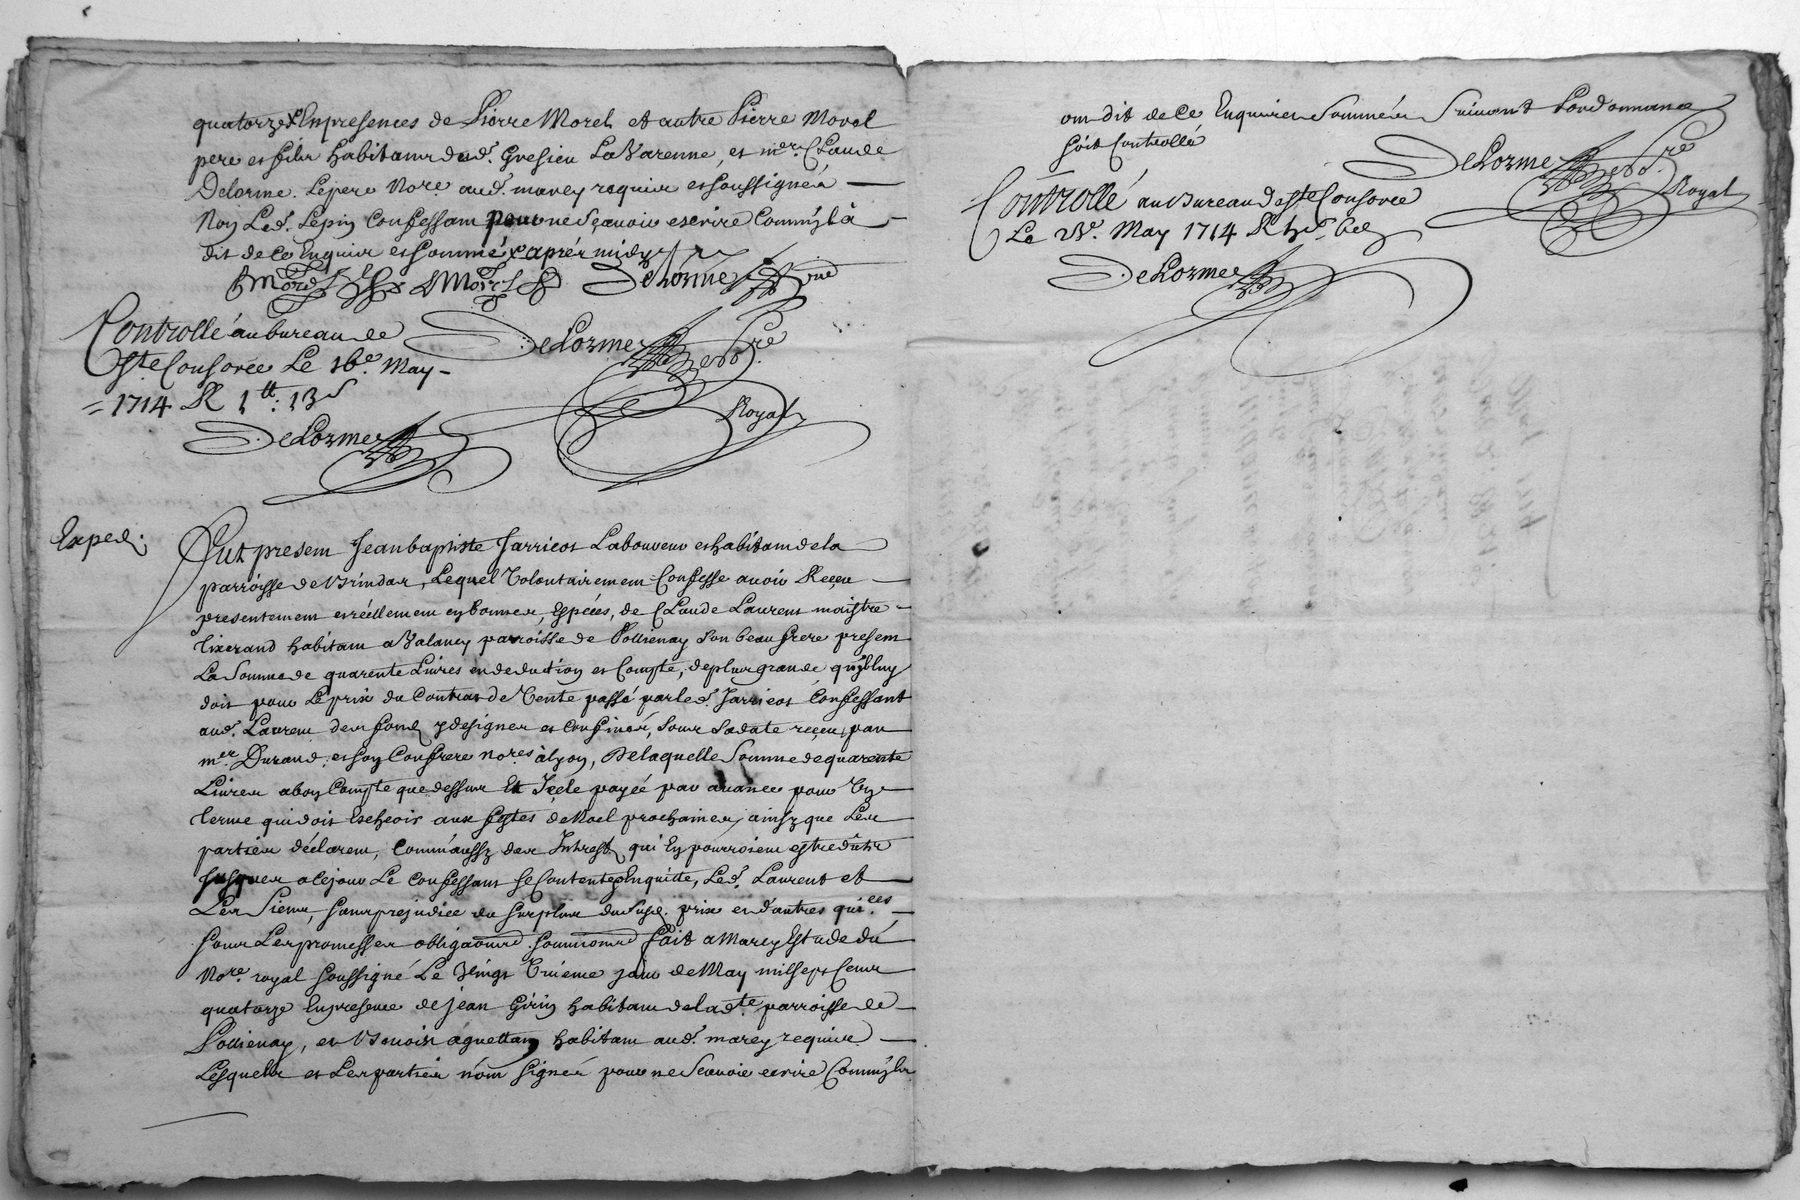 quatorze Enpresences de Pierre Morel et autre Pierre Morel
pere et fils habitans dud. Gresieu LaVarenne, et mer. Claude
Delorme Lepere Nore aud. marcy requis et soussignés
Non Led. Lepin Confessant pour ne sçavoir escrire Commil a
dit de ce Enquis et sommé aprés midy
Morel Morel DeLorme
Controllé au bureau de
Ste Consorce Le 16e. May
1714 R 1tt: 13s
DeLorme
DeLorme
Royal
Exped.
Fut présent Jean baptiste Jarricot Laboureur et habitant de la
parroisse de Brindas, Lequel Volontairement Confesse avoir Reçeu
presentement et réellement en bonnes Especes, de Claude Laurent maistre
tixerand habitant a Valancy parroisse de Pollienay son beau frere present
La Somme de quarente Livres en deduction et Compte, de plus grande qu'il luy
doit pour Le prix du Contrat de Vente passé par led. Jarricot Confessant
aud. Laurent des fonds y designes et Confinés, sous sa date reçeu par
mer. Durand et son Confrere nores à Lyon, De laquelle Somme de quarente
Livres a bon Compte que dessus Et Icele payée par avance pour Un
terme qui doit Escheoir aux festes de Noel prochaines, ainsy que Les
parties déclarent, Comm'aussy des Intrests qui En pourroient estre dûts
jusques a ce jour Le Confessant se Contente Enquitte, Led. Laurent et
Les Siens, sans prejudice du surplus dususd. prix et d'autres qui.ces
sous Les promesses obligaons soumions fait a Marcy Estude du
Nore. royal soussigné Le Vingt Unieme jour de May mil sept Cent
quatorze Enpresence de jean Girin habitant de lad.te parroisse de
Pollienay, et Benoist aguettan habitant aud. marcy requis
Lesquels et Les parties n'ont signés pour ne Scavoir ecrire Comm'ils
ont dit de Ce Enquis et Sommés Suivant Lordonnance
soit Controllé
DeLorme
Royal
Controllé au Bureau de Ste Consorce
Le May 1714 R
DeLorme